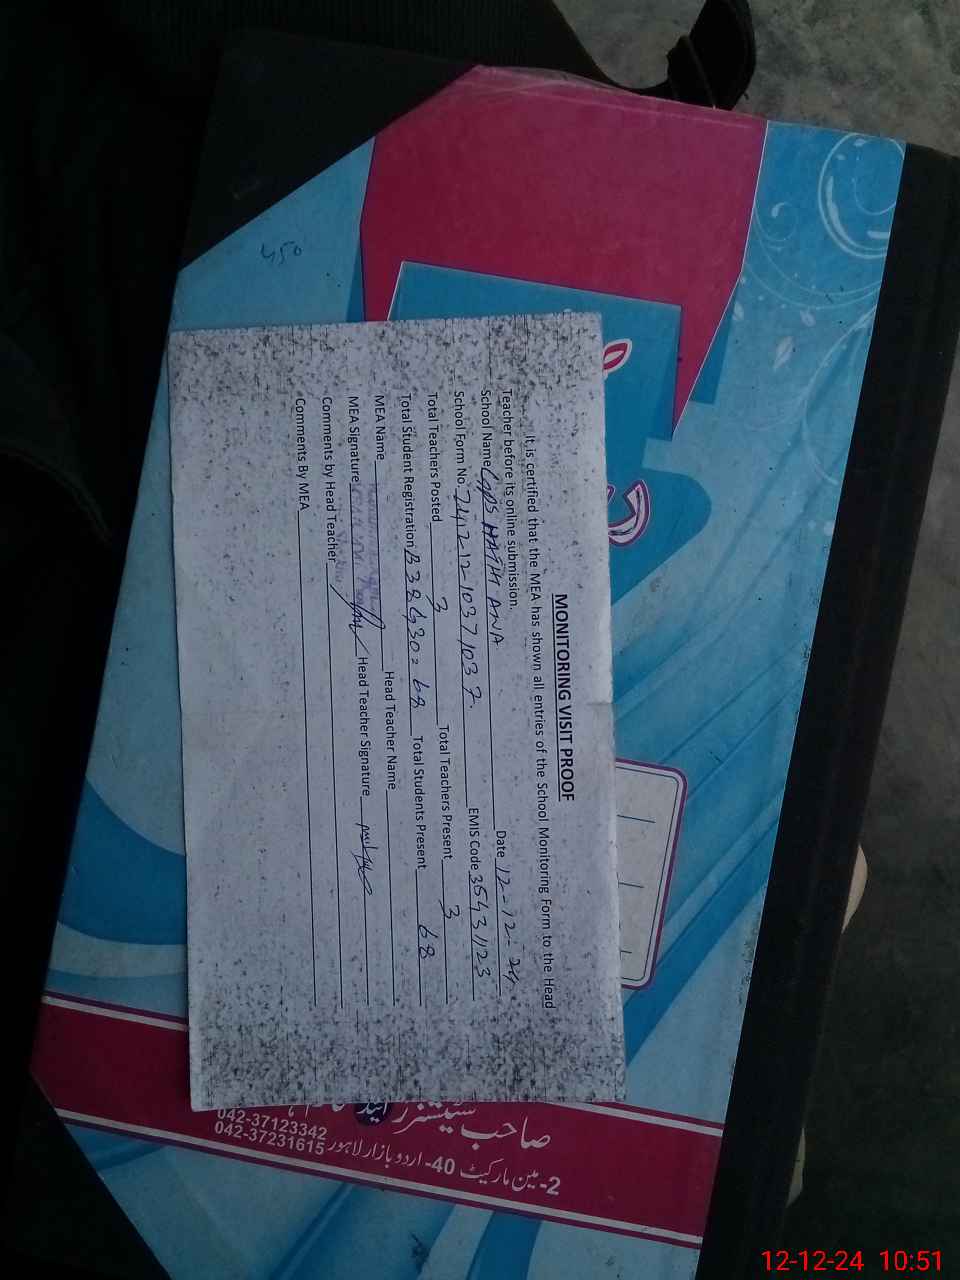 MONITORING VISIT PROOF
It is certified that the MEA has shown all entries of the School Monitoring Form to the Head
Teacher before its online submission.
School Name GPS HATHI ANA Date 12-12-24
School Form No. EMIS Code 35431123
Total Teachers Posted 3 Total Teachers Present 3
Total Student Registration Total Students Present 68
MEA Name Head Teacher Name
MEA Signature Head Teacher Signature
Comments by Head Teacher
Comments By MEA
450
صاحب سٹیشنرز اینڈ
2-مین مارکیٹ 40-اردو بازار لاہور
042-37123342
042-37231615
12-12-24 10:51